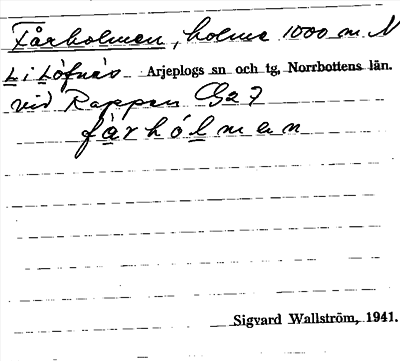 Fårholmen, holme 1000 m. N
L i Löfnäs Arjeplogs sn och tg, Norrbottens län.
vid Rappen
fàrhólman
Sigvard Wallström, 1941.